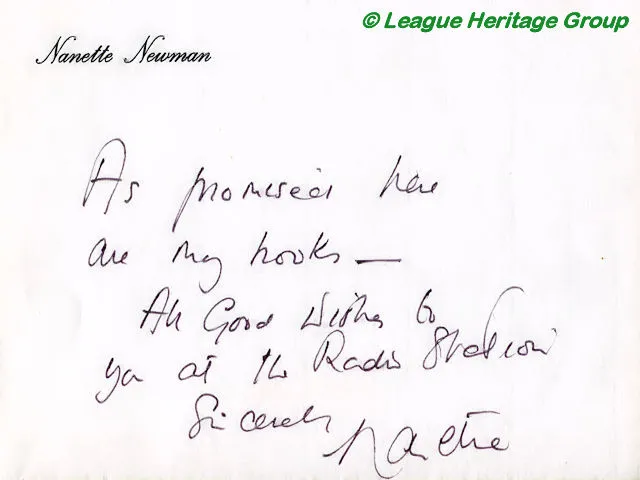 © League Heritage Group
Nanette Newman
As promised here
are my books —
All Good Wishes to
you at the Radio Station
Sincerely
Nanette